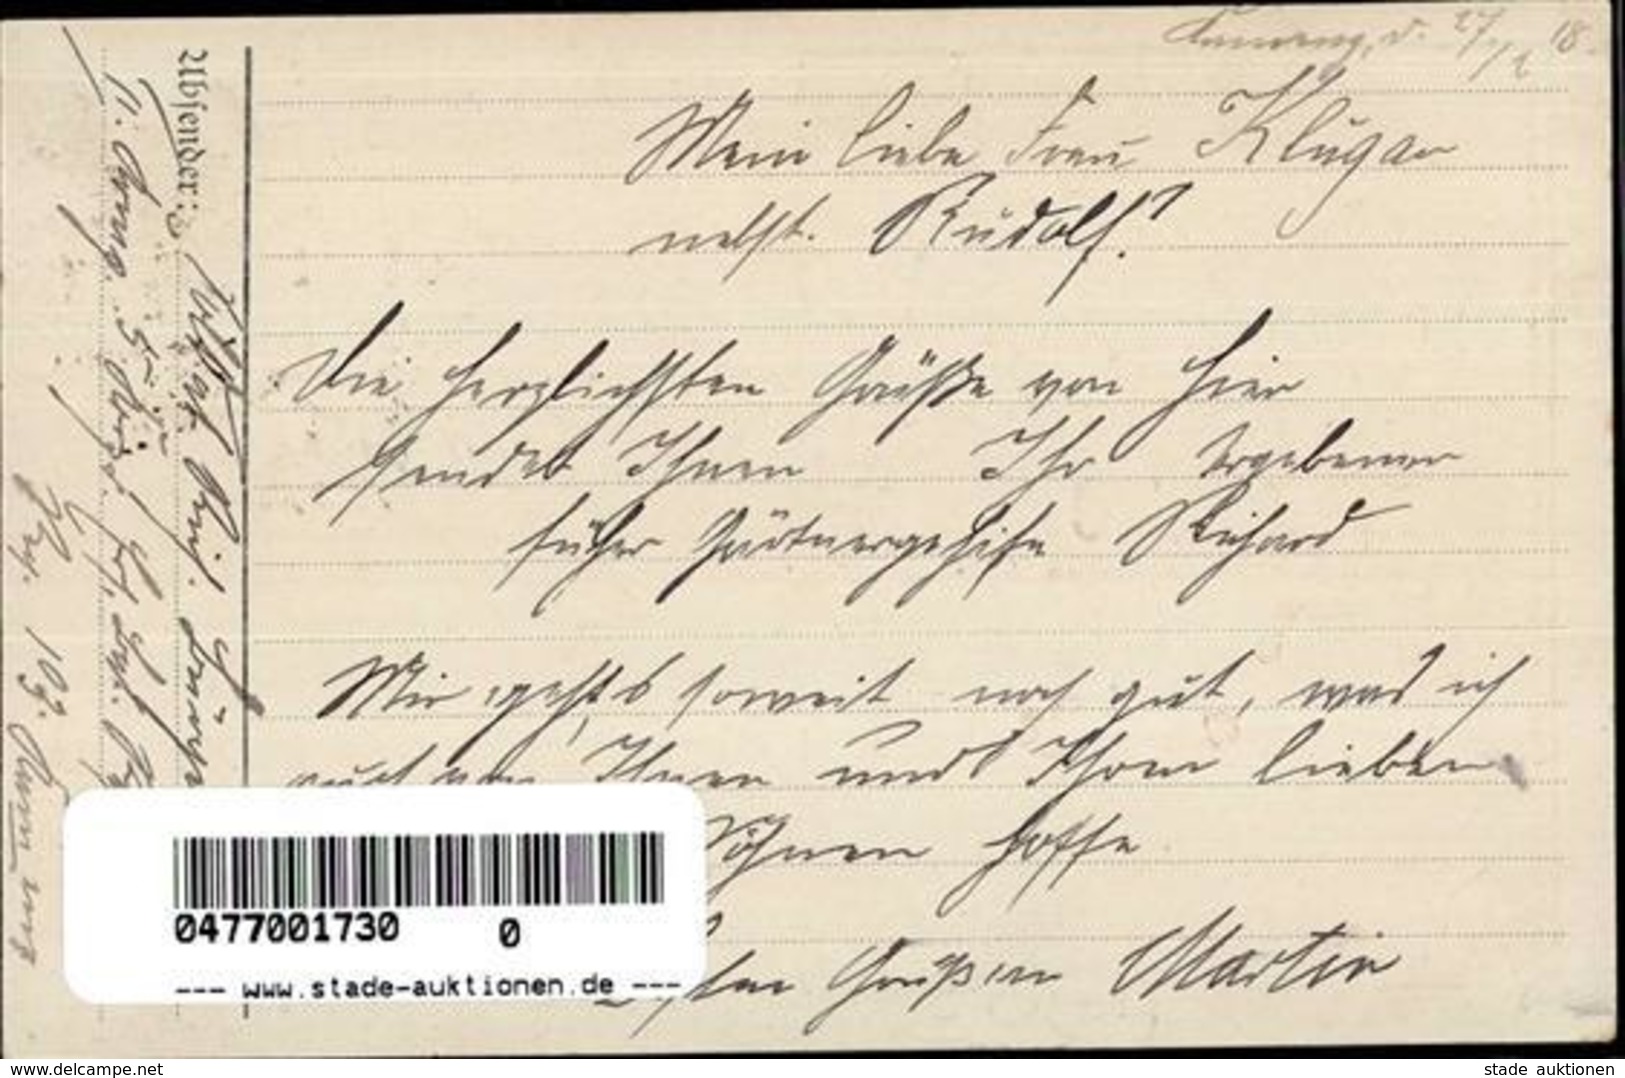 d. 27/1 18.
Mein liebe Frau Klugar
nebst. Rudolf!
Die herzlichsten Grüße von hier
sendet Ihnen Ihr ergebener
früher Gärtnergehilfe Richard
Mir geht's soweit noch gut, was ich
auch von Ihnen und Ihren lieben
Söhnen hoffe
Grüßen Martin
Absender:
5
Nr. 103.
0477001730 0
--- www.stade-auktionen.de ---
www.delcampe.net
stade auktionen